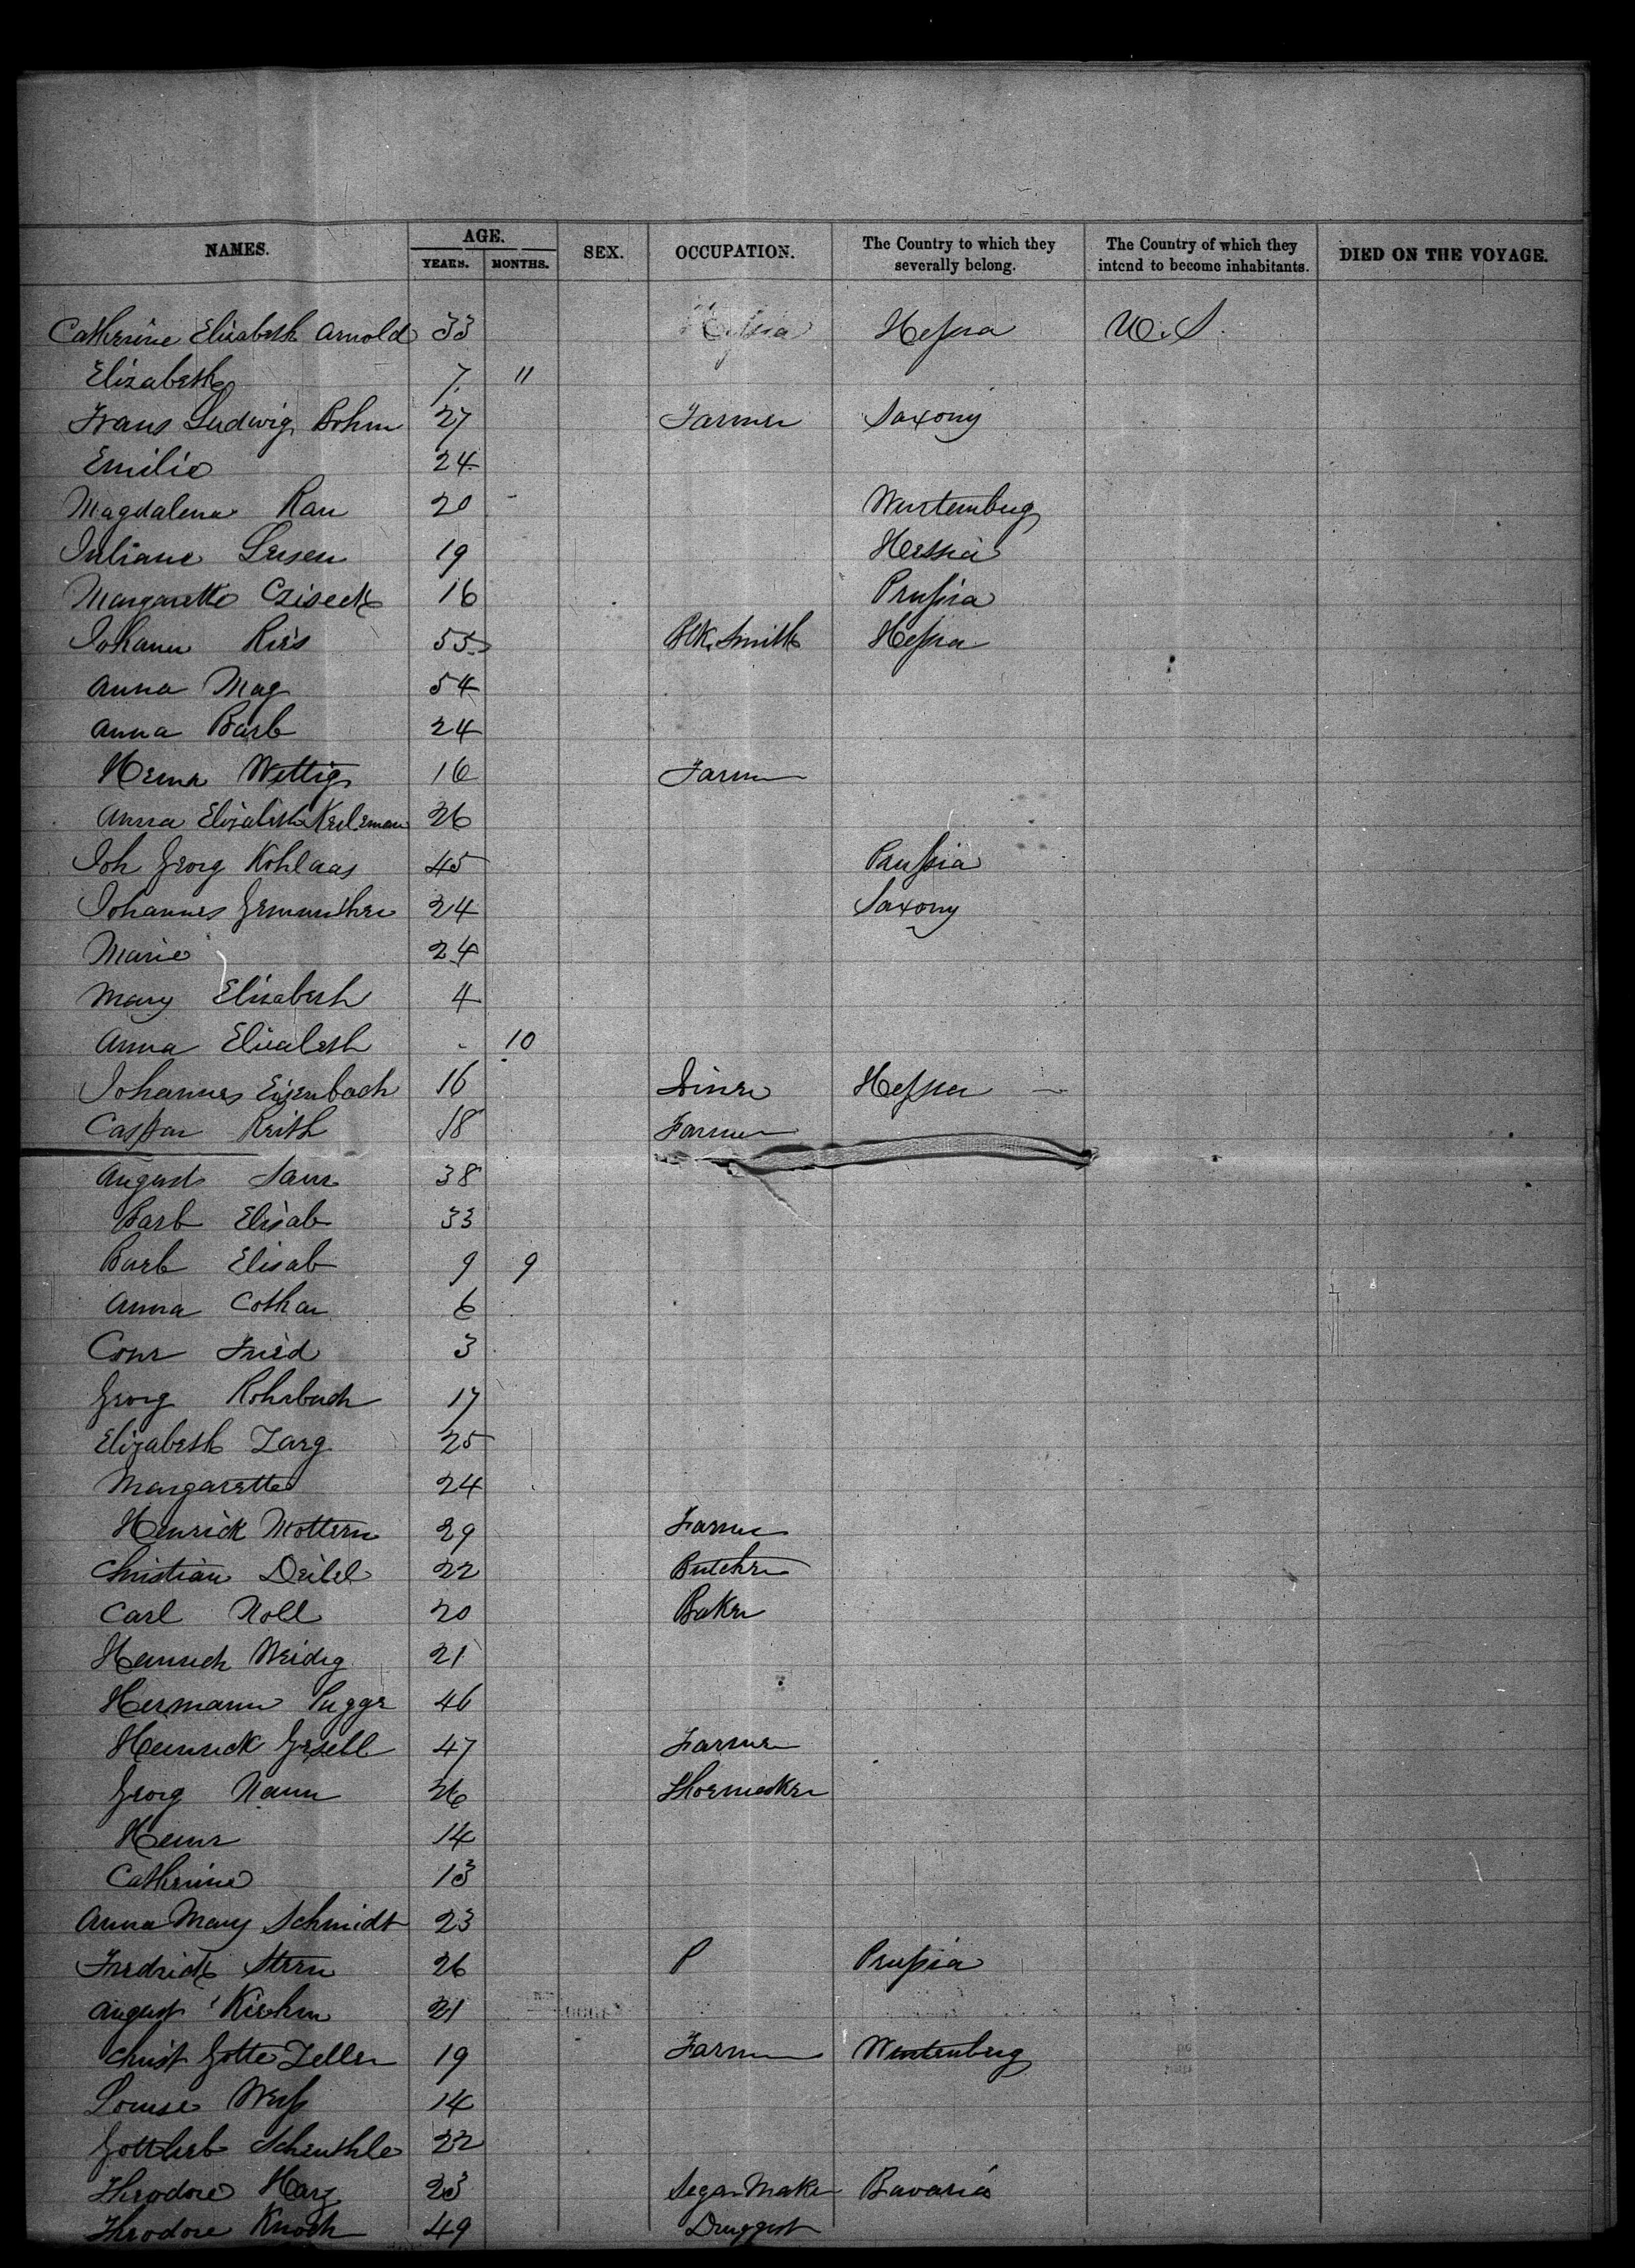 NAMES. AGE. SEX. OCCUPATION. The Country to which they severally belong. The Country of which they intend to become inhabitants. DIED ON THE VOYAGE.
YEARS. MONTHS.
Catherine Elisabeth Arnold 33 Hessia Hessia U.S.
Elizabeth 7 11
Frans Ludwig Bohm 27 Farmer Saxony
Emilie 24
Magdalena Rau 20 Wurtemburg
Juliane Leisen 19 Hessia
Margarette Cziseck 16 Prussia
Johann Ries 55 Blk. Smith Hessia
Anna Mag 54
Anna Barb 24
Heinr Wettig 16 Farm
Anna Elizabeth 26
Joh Georg Kohlaas 45 Prussia
Johannes 24 Saxony
Marie 24
Mary Elisabeth 4
Anna Elisabeth 10
Johannes Eisenbach 16 Hessia
Caspar Reith 18 Farmer
August Saur 38
Barb Elisab 33
Barb Elisab 9 9
Anna Cathar 6
Conr Fried 3
Georg Rohrbach 17
Elizabeth Zarg 25
Margarette 24
Henrick Mottern 29 Farmer
Christian Deibel 22 Butcher
Carl Noll 20 Baker
Heinrich Weidig 21
Hermann 46
Heinrick Gesell 47 Farmer
Georg Naum 26 Shoemaker
Heinr 14
Catherine 13
Anna Mary Schmidt 23
Fredrick Stern 26 P Prussia
August Kirchm 21
Christ Gotte Zeller 19 Farm Wurtenberg
Louise Weiss 14
Gottlieb Scheuthle 22
Theodore Harz 23 Segar Maker Bavaria
Theodore Knoch 49 Druggist